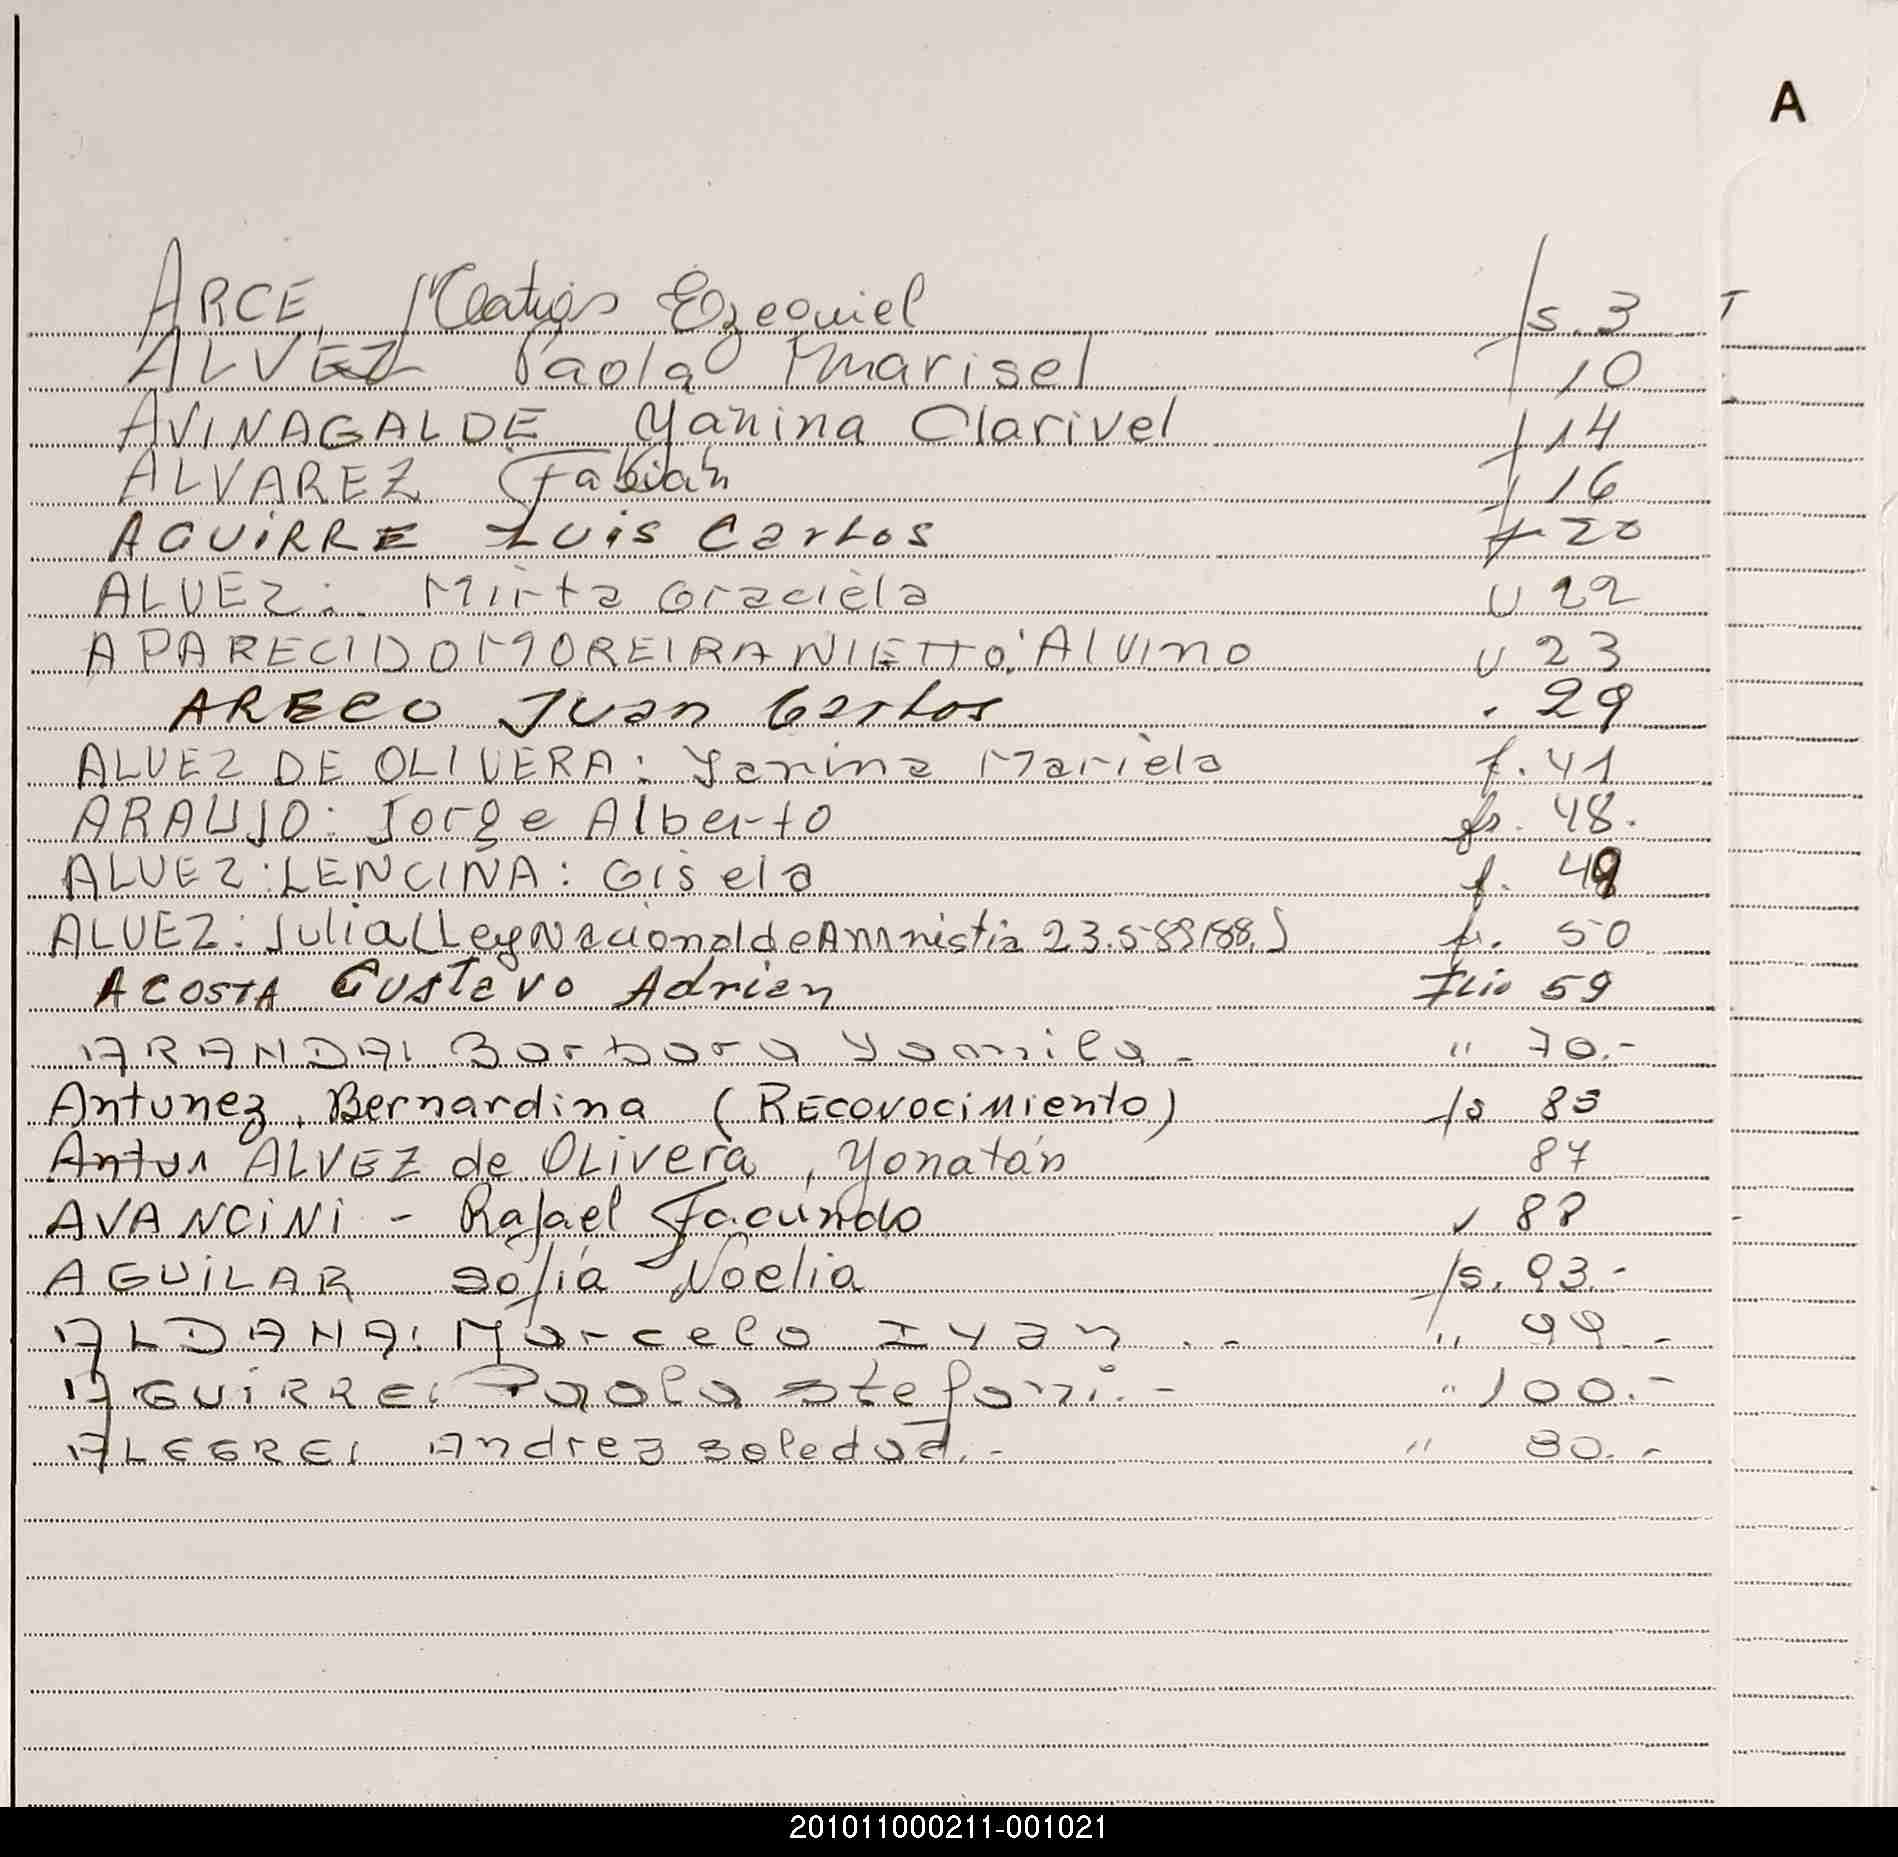 A
ARCE, Matías Ezequiel fs. 3
ALVEZ Paola Marisel f 10
AVINAGALDE Yanina Clarivel f 14
ALVAREZ Fabián f 16
AGUIRRE Luis Carlos f 20
ALVEZ: Mirta Graciela u 22
APARECIDO MOREIRA NIETTO: Alvino u 23
ARECO Juan Carlos . 29
ALVEZ DE OLIVERA: Yanina Mariela f. 41
ARAUJO: Jorge Alberto fs. 48.
ALVEZ: LENCINA: Gisela f. 49
ALVEZ: Julia (Ley Nacional de Amnistia 23.5 88.) f. 50
ACOSTA Gustavo Adrian Flio 59
ARANDA: Barbara Yamila - " 70.-
Antunez, Bernardina (RECONOCIMIENTO) fs 83
Antun ALVEZ de OLivera, Yonatán 87
AVANCINI - Rafael Facundo 88
AGUILAR Sofía Noelia fs. 93.-
ALDANA: Marcelo IVan . - " 99.-
AGUIRRE: Paola Stefani.- " 100.-
ALEGRE: Andrea Soledad.- " 80.-
201011000211-001021